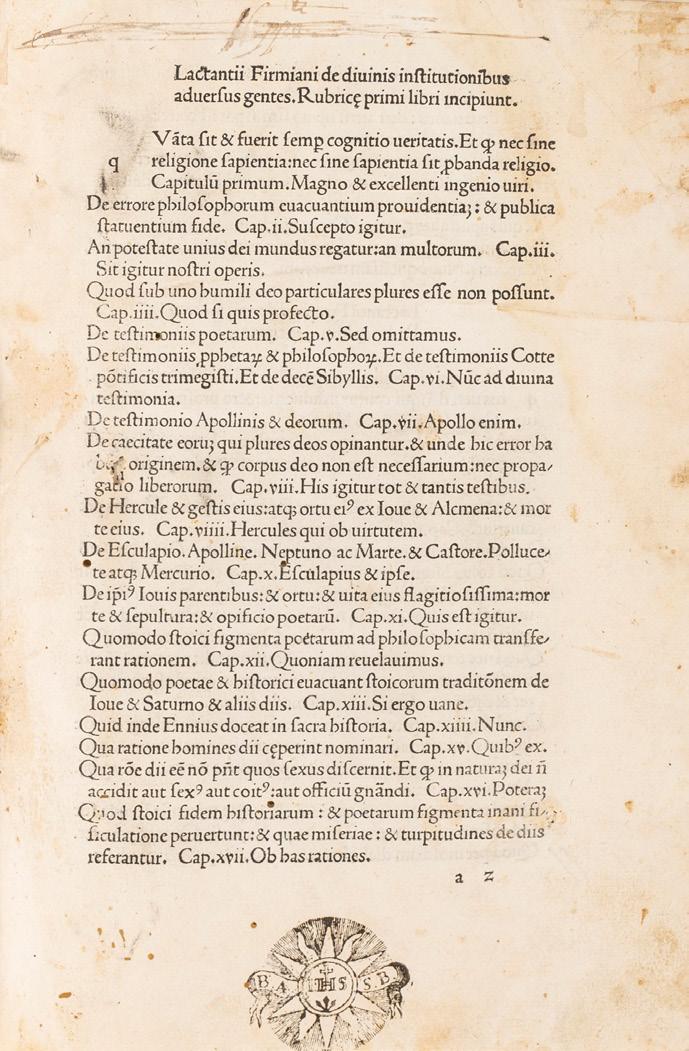 Lactantii Firmiani de diuinis institutionibus
aduersus gentes. Rubricę primi libri incipiunt.
Vāta sit & fuerit semꝑ cognitio ueritatis. Et ꝙ nec sine
q religione sapientia: nec sine sapientia sit ꝓbanda religio.
Capitulū primum. Magno & excellenti ingenio uiri.
De errore philosophorum euacuantium prouidentiaꝫ: & publica
statuentium fide. Cap. ii. Suscepto igitur.
An potestate unius dei mundus regatur: an multorum. Cap. iii.
Sit igitur nostri operis.
Quod sub uno humili deo particulares plures esse non possunt.
Cap. iiii. Quod si quis profecto.
De testimoniis poetarum. Cap. v. Sed omittamus.
De testimoniis ꝓphetaꝝ & philosophoꝝ. Et de testimoniis Cotte
pōtificis trimegisti. Et de decē Sibyllis. Cap. vi. Nūc ad diuina
testimonia.
De testimonio Apollinis & deorum. Cap. vii. Apollo enim.
De caecitate eoruꝫ qui plures deos opinantur. & unde hic error ha
originem. & ꝙ corpus deo non est necessarium: nec propa⸗
gatio liberorum. Cap. viii. His igitur tot & tantis testibus.
De Hercule & gestis eius: atqꝫ ortu eiꝰ ex Ioue & Alcmena: & mor
te eius. Cap. viiii. Hercules qui ob uirtutem.
De Esculapio. Apolline. Neptuno ac Marte. & Castore. Polluce⸗
te atqꝫ Mercurio. Cap. x. Esculapius & ipse.
De ip̄iꝰ Iouis parentibus: & ortu: & uita eius flagitiosissima: mor
te & sepultura: & opificio poetarū. Cap. xi. Quis est igitur.
Quomodo stoici figmenta poetarum ad philosophicam transfe⸗
rant rationem. Cap. xii. Quoniam reuelauimus.
Quomodo poetae & historici euacuant stoicorum traditōnem de
Ioue & Saturno & aliis diis. Cap. xiii. Si ergo uane.
Quid inde Ennius doceat in sacra historia. Cap. xiiii. Nunc.
Qua ratione homines dii cęperint nominari. Cap. xv. Quibꝰ ex.
Qua rōe dii eē nō pn̄t quos sexus discernit. Et ꝙ in naturaꝫ dei n̄
accidit aut sexꝰ aut coitꝰ: aut officiū gnāndi. Cap. xvi. Poteraꝫ
Quod stoici fidem historiarum: & poetarum figmenta inani fi⸗
siculatione peruertunt: & quae miseriae: & turpitudines de diis
referantur. Cap. xvii. Ob has rationes.
a 2
B. A IHS S. B